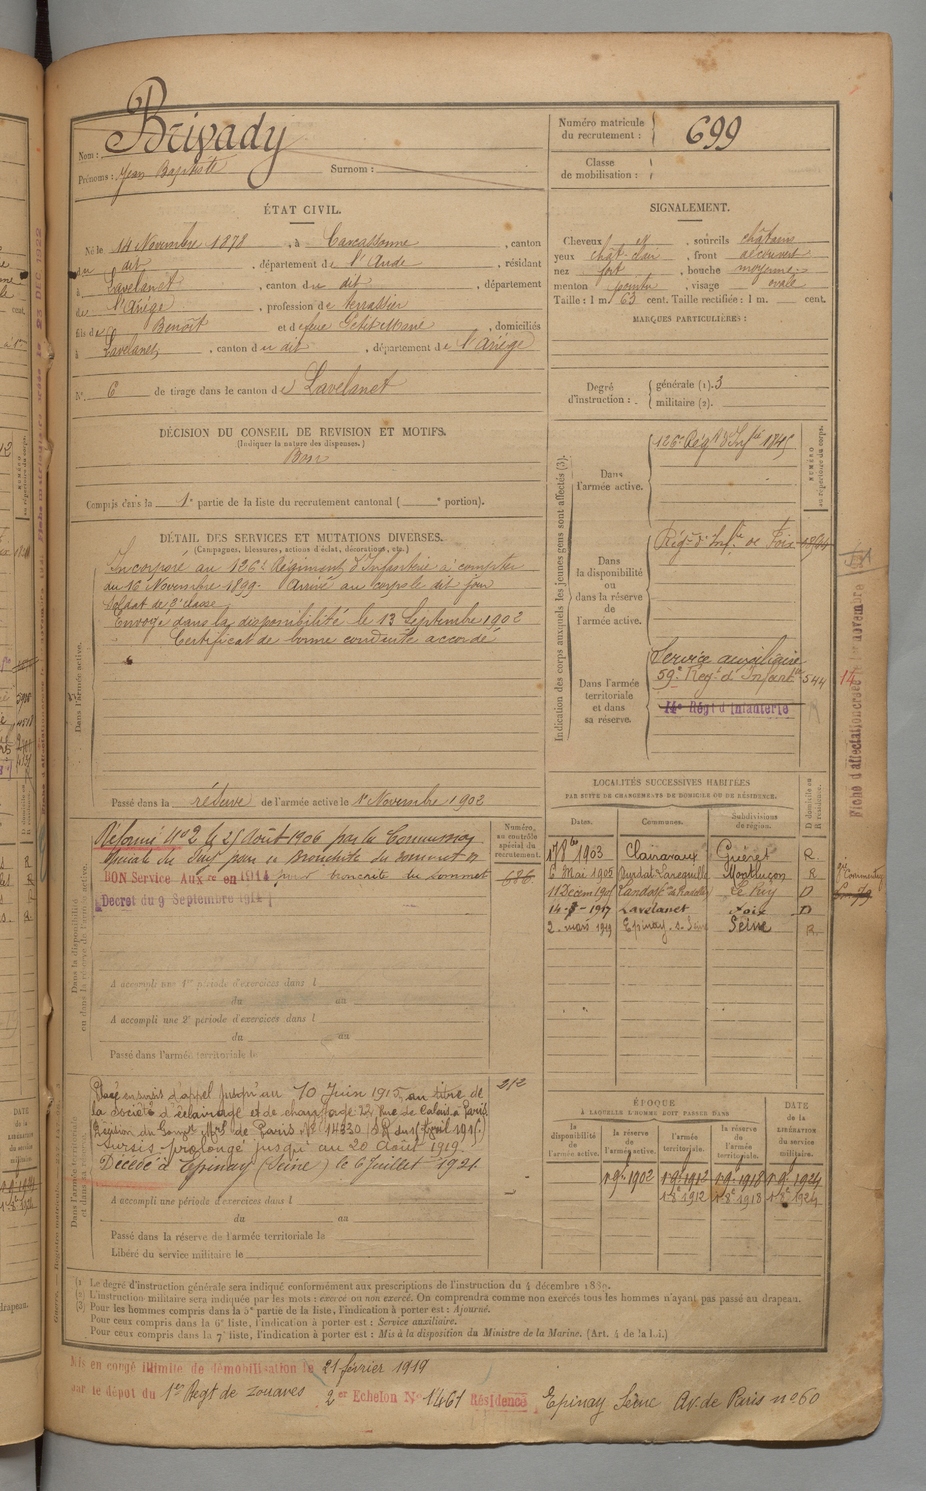 Nom : Brivady
Prénoms : Jean Baptiste Surnom :
Numéro matricule du recrutement : 699
Classe de mobilisation :
ÉTAT CIVIL.
Né le 14 Novembre 1878, à Carcassonne, canton
dudit, département de l'Aude, résidant
à Lavelanet, canton du dit, département
de l'Ariège, profession de terrassier
fils de Benoît et de feue Petit Marie, domiciliés
à Lavelanet, canton du dit, département de l'Ariège
N° 6 de tirage dans le canton de Lavelanet
SIGNALEMENT.
Cheveux et, sourcils châtains
yeux chât. clair, front découvert
nez fort, bouche moyenne
menton pointu, visage ovale
Taille : 1 m. 63 cent. Taille rectifiée : 1 m. cent.
MARQUES PARTICULIÈRES :
Degré d'instruction : générale (1). 3
militaire (2).
DÉCISION DU CONSEIL DE REVISION ET MOTIFS.
(Indiquer la nature des dispenses.)
Bon
Compris dans la 1e partie de la liste du recrutement cantonal ( e portion).
DÉTAIL DES SERVICES ET MUTATIONS DIVERSES.
(Campagnes, blessures, actions d'éclat, décorations, etc.)
Dans l'armée active.
Incorporé au 126e Régiment d'Infanterie à compter
du 16 Novembre 1899. Arrivé au corps le dit jour
Soldat de 2e classe
Envoyé dans la disponibilité le 13 Septembre 1902
Certificat de bonne conduite accordé
Passé dans la réserve de l'armée active le 1er Novembre 1902
Indication des corps auxquels les jeunes gens sont affectés (3).
NUMÉRO au répertoire du corps.
Dans l'armée active.
126e Régt d'Infie
Dans la disponibilité ou dans la réserve de l'armée active.
Régt d'Infie de Foix
Dans l'armée territoriale et dans sa réserve.
Service auxiliaire
59e Régt d'Infantie 544
14e Régt d'Infanterie
14
Dans la disponibilité ou dans la réserve de l'armée active.
Numéro, au contrôle spécial du recrutement.
Réformé No 2 le 25 Août 1906 par la Commission
spéciale de pour bronchite du sommet
BON Service Auxre en 1914 pour bronchite du sommet
Décret du 9 Septembre 1914
686
A accompli une 1re période d'exercices dans l
du au
A accompli une 2e période d'exercices dans l
du au
Passé dans l'armée territoriale le
LOCALITÉS SUCCESSIVES HABITÉES
PAR SUITE DE CHANGEMENTS DE DOMICILE OU DE RÉSIDENCE.
Dates. Communes. Subdivisions de région. D domicile ou R résidence.
17 8bre 1903 Clairavaux Guéret R.
6 Mai 1905 Montluçon R
11 Decem 1905 Le Puy D
1917 Lavelanet Foix D
2 mars 1919 Epinay s. Seine Seine R.
212
Placé en sursis d'appel jusqu'au 10 Juin 1915, au titre de
la Société d'éclairage et de chauffage 22, Rue de Calais à Paris
Division du Compt Mre de Paris No 14330
Sursis prolongé jusqu'au 20 Août 1919.
Décédé à Epinay (Seine) le 6 Juillet 1921
A accompli une période d'exercices dans l
du au
Passé dans la réserve de l'armée territoriale le
Libéré du service militaire le
ÉPOQUE
À LAQUELLE L'HOMME DOIT PASSER DANS
DATE de la LIBÉRATION du service militaire.
la disponibilité de l'armée active. la réserve de l'armée active. l'armée territoriale. la réserve de l'armée territoriale.
1er 9bre 1902 1er 9bre 1912 1er 9bre 1918 1er 9bre 1924
1er 8e 1912 1er 8e 1918 1er 8e 1924
(1) Le degré d'instruction générale sera indiqué conformément aux prescriptions de l'instruction du 4 décembre 1889.
(2) L'instruction militaire sera indiquée par les mots : exercé ou non exercé. On comprendra comme non exercés tous les hommes n'ayant pas passé au drapeau.
(3) Pour les hommes compris dans la 5e partie de la liste, l'indication à porter est : Ajourné.
Pour ceux compris dans la 6e liste, l'indication à porter est : Service auxiliaire.
Pour ceux compris dans la 7e liste, l'indication à porter est : Mis à la disposition du Ministre de la Marine. (Art. 4 de la Loi.)
Mis en congé illimité de démobilisation le 21 février 1919
par le dépôt du 1er Regt de zouaves 2er Echelon No 1461 Résidence Epinay Seine Av. de Paris no 60